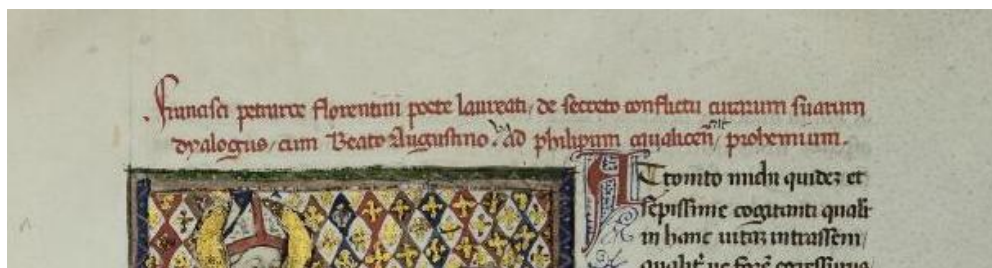 Francisci petrarce florentini poete laureati, de secreto conflictu curarum suarum
dyalogus, cum Beato Augustino. Ad philipum cavalicen, prohemium.
Attonito michi quidez et
sepissime cogitanti qualit
in hanc vitaz intrassem,
qualit ve forem egressurus